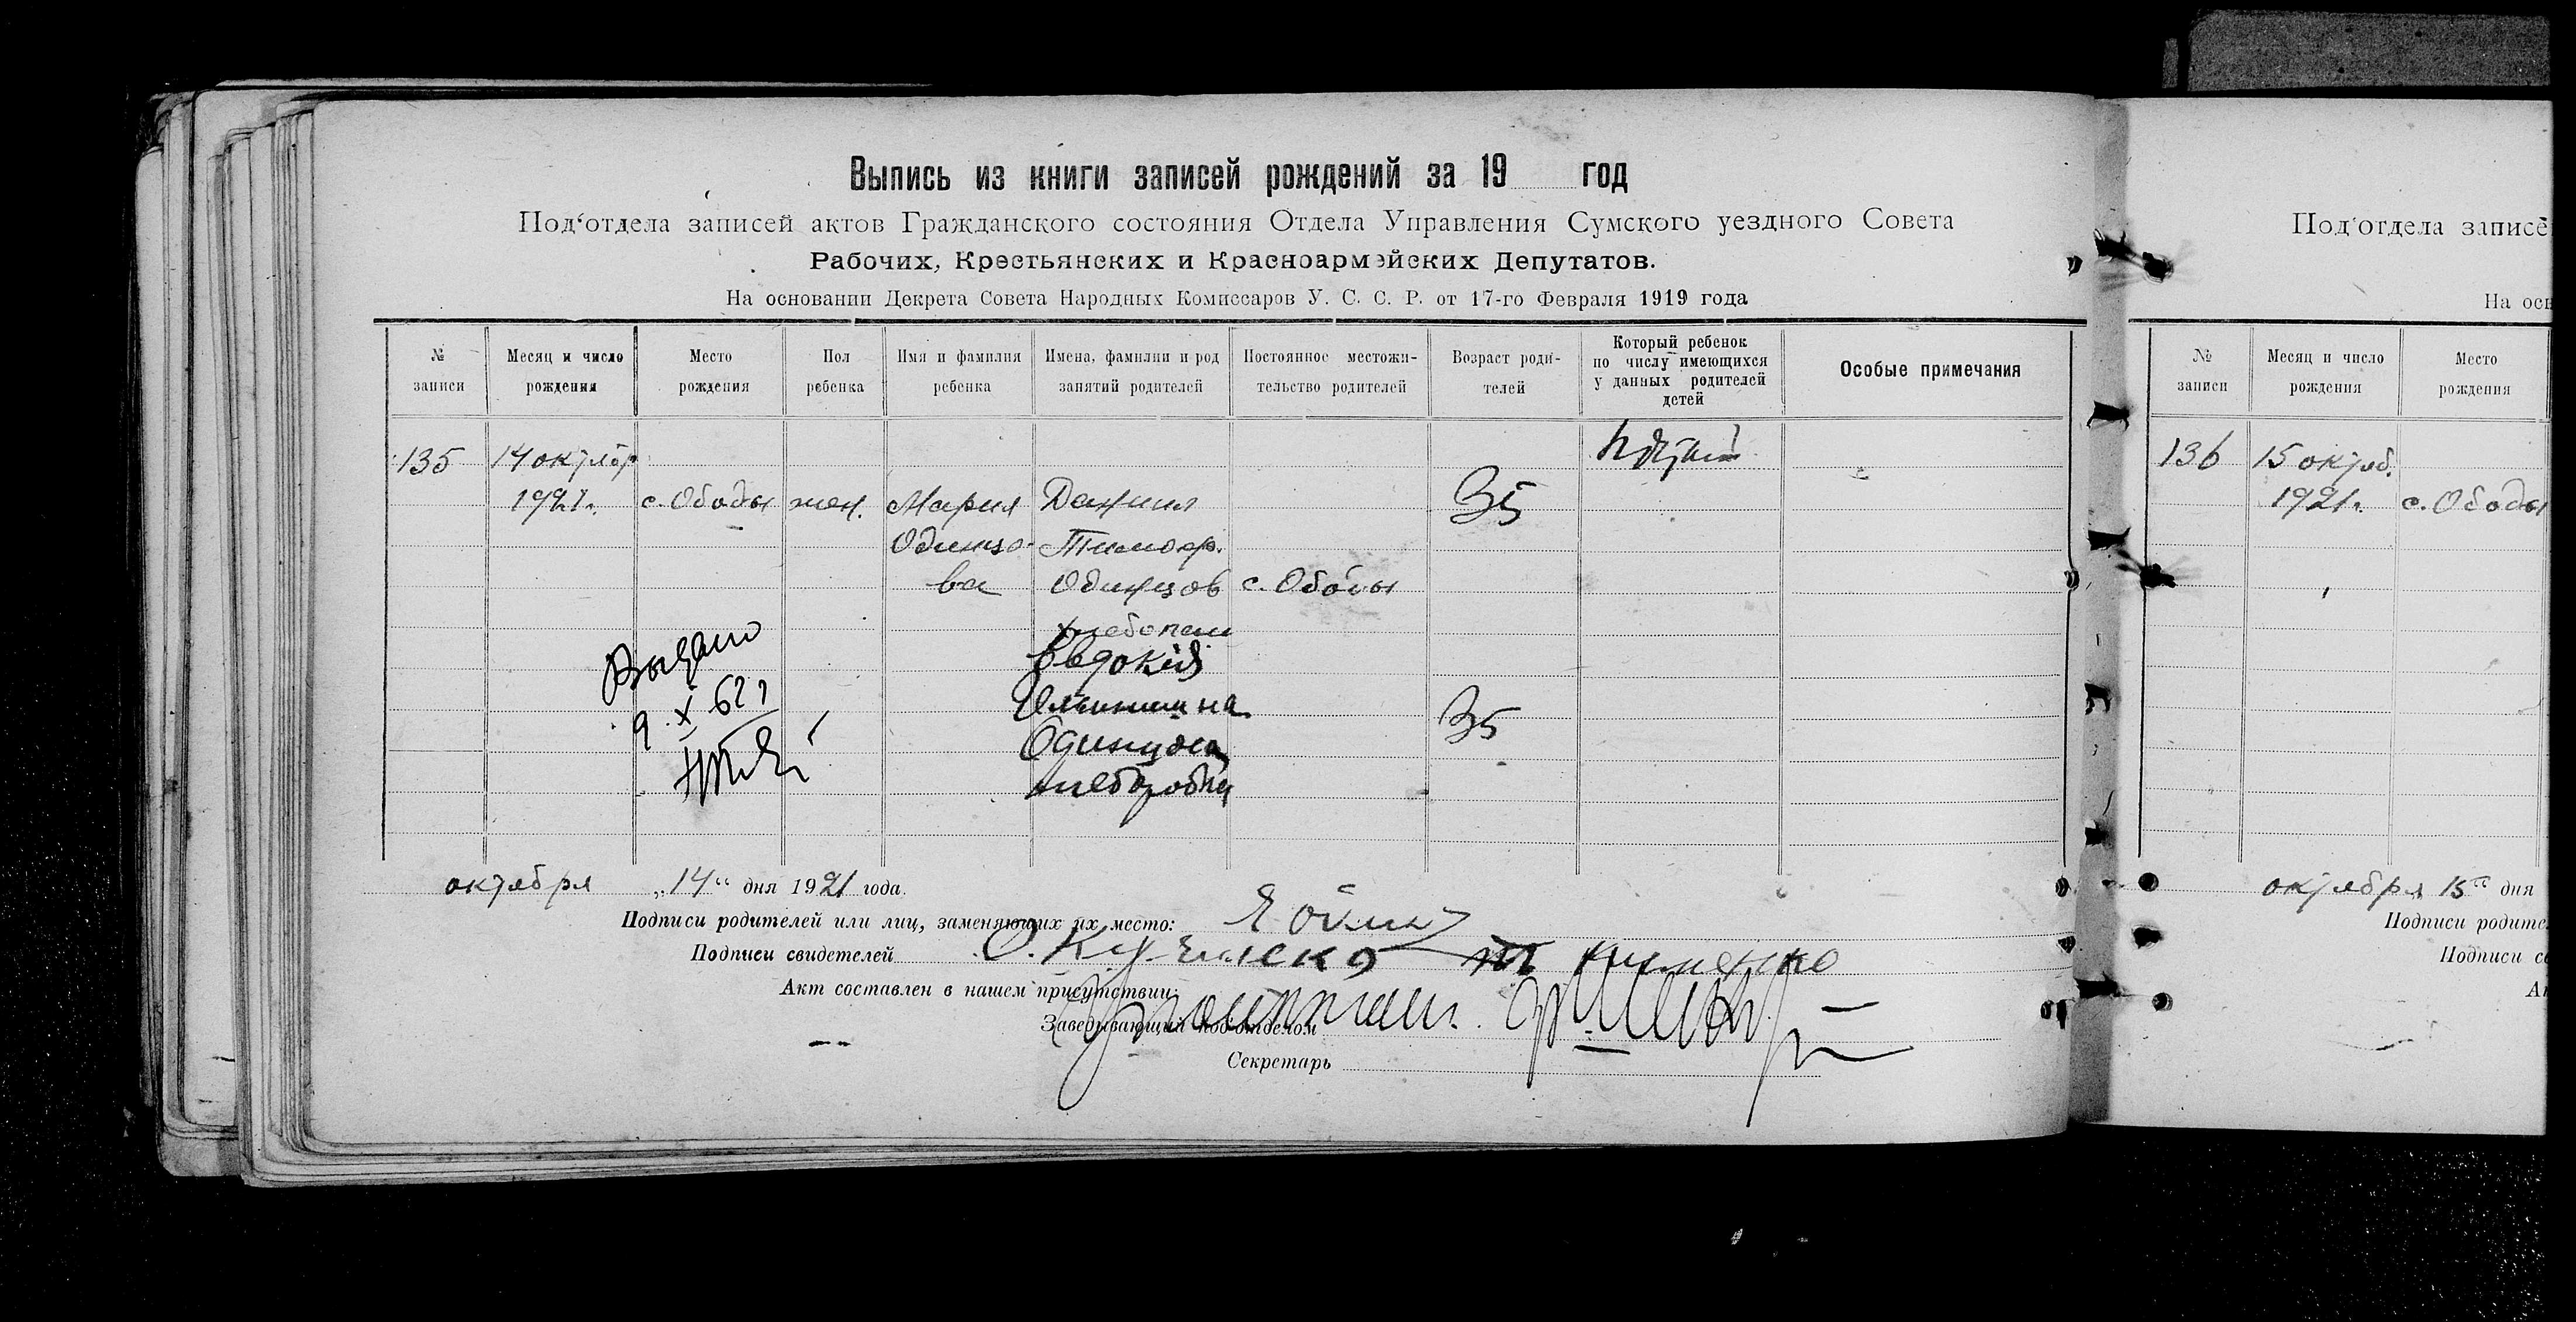 Выпись из книги записей рождений за 19 год
Под‘отдела записей актов Гражданского состояния Отдела Управления Сумского уездного Совета
Рабочих, Крестьянских и Красноармэйских Депутатов.
На основании Декрета Совета Народных Комиссаров У. С. С. Р. от 17-го Февраля 1919 года
№ записи
Месяц и число рождения
Место рождения
Пол ребенка
Имя и фамилия ребенка
Имена, фамилии и род занятий родителей
Постоянное местожи-
тельство родителей
Возраст роди-
телей
Который ребенок
по числу имеющихся
у данных родителей
детей
Особые примечания
135
14 октябр
1921 г.
с. Ободы
жен.
Мария
Одинцо-
ва
Даниил
Тимоф.
Одинцов
хлебопаш
Евдокия
Одинцова
хлеборобка
с. Ободы
35
35
Выдано
9.X 62 г
октября „14“ дня 1921 года.
Подписи родителей или лиц, заменяющих их место:
Подписи свидетелей
Акт составлен в нашем присутствии:
Заведывающий под‘отделом
Секретарь
Под‘отдела записе
На осн
№ записи
Месяц и число рождения
Место рождения
136
15 октяб.
1921 г.
с. Ободы
октября 15“ дня
Подписи родите
Подписи с
А